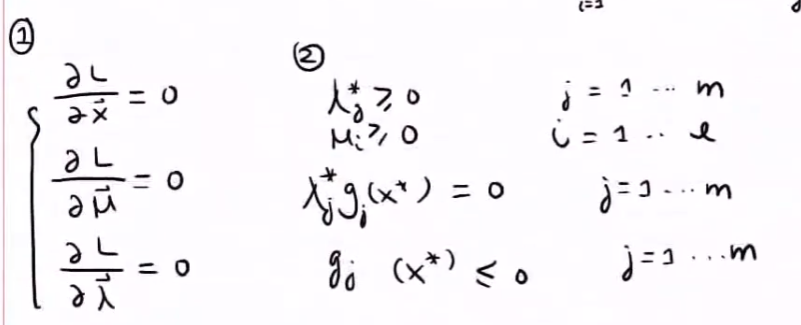 i=1
①
∂L/∂x⃗ = 0
∂L/∂μ⃗ = 0
∂L/∂λ⃗ = 0
②
λ*ⱼ ≥ 0 j = 1 ... m
μᵢ ≥ 0 i = 1 .. l
λ*ⱼ gⱼ(x*) = 0 j = 1 ... m
gⱼ (x*) ≤ 0 j = 1 ... m